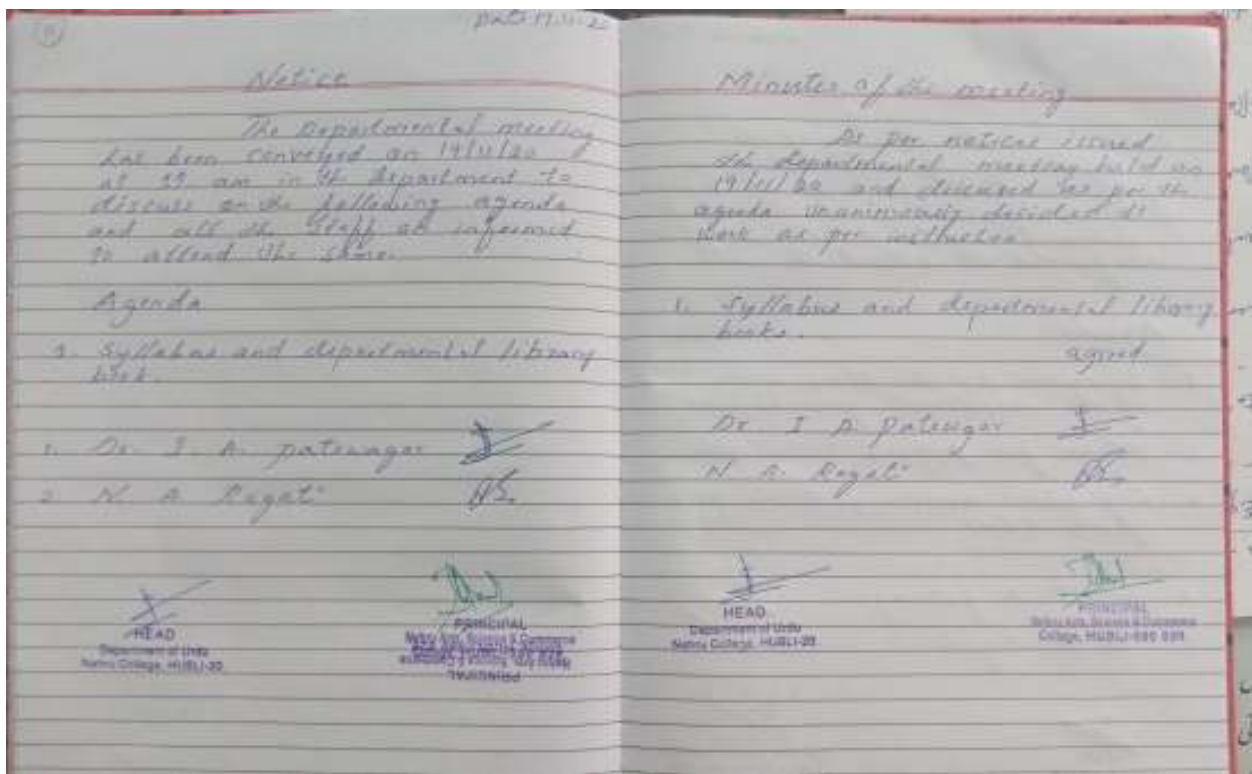 Date 19.11.20
Notice
The Departmental meeting
has been conveyed on 19/11/20
at 11 am in the department to
discuss on the following agenda
and all the staff are informed
to attend the same.
Agenda
1. Syllabus and departmental library
book.
1. Dr. I. A.
2. N. A.
HEAD
Department of Urdu
Nehru College, HUBLI-20
PRINCIPAL
Nehru Arts, Science & Commerce
PRINCIPAL
Minutes of the meeting
As per notices issued
the departmental meeting held on
19/11/20 and discused as per the
agenda unanimously decided to
work as per instruction
1. Syllabus and departmental library
books.
agreed
Dr. I A
N. A.
HEAD
Department of Urdu
Nehru College, HUBLI-20
PRINCIPAL
Nehru Arts, Science & Commerce
College, HUBLI-580 020